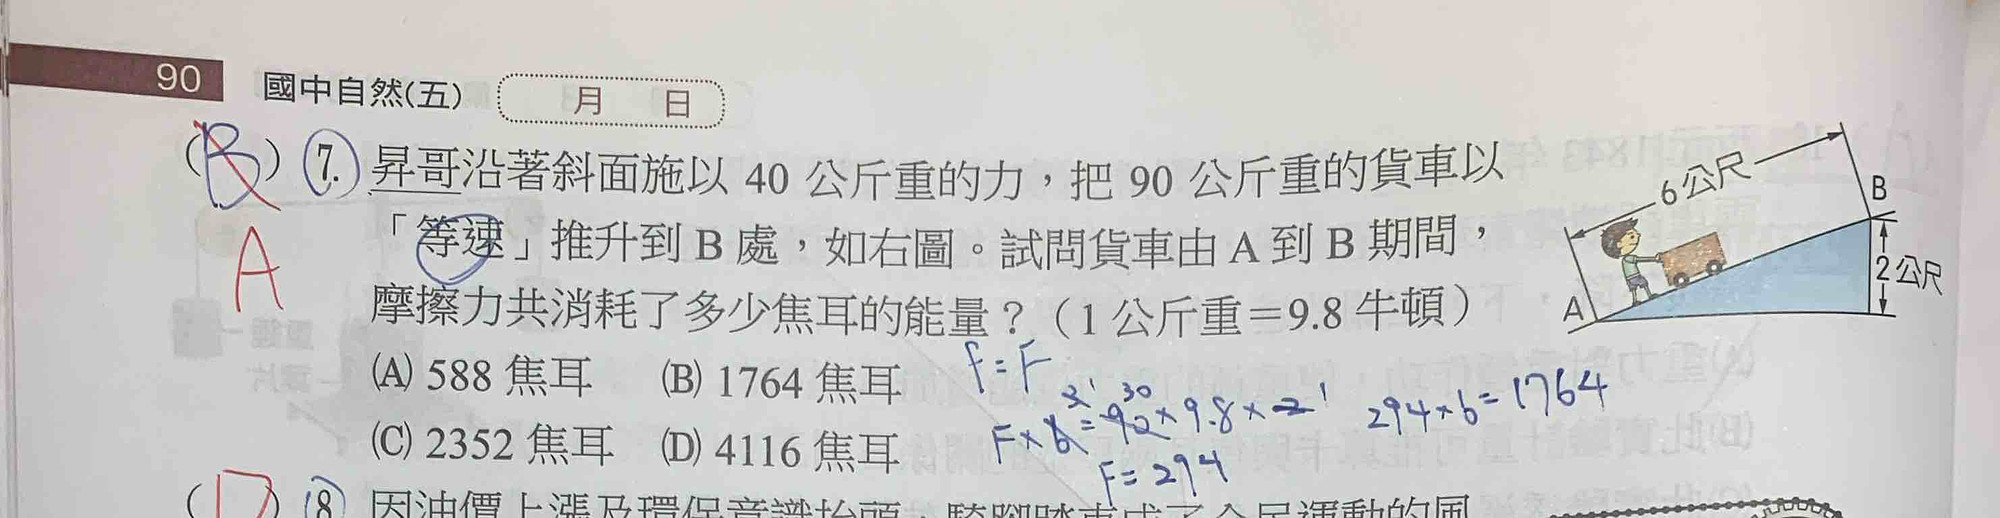 90 國中自然(五) 月 日
(B) 7. 昇哥沿著斜面施以 40 公斤重的力，把 90 公斤重的貨車以
A
「等速」推升到 B 處，如右圖。試問貨車由 A 到 B 期間，
摩擦力共消耗了多少焦耳的能量？（1 公斤重＝9.8 牛頓）
6公尺
B
2公尺
A
(A) 588 焦耳 (B) 1764 焦耳
(C) 2352 焦耳 (D) 4116 焦耳
f=F
3 1 30 1
F×6=90×9.8×2
F=294
294×6=1764
(D) 8. 因油價上漲及環保意識抬頭，騎腳踏車成了全民運動的風